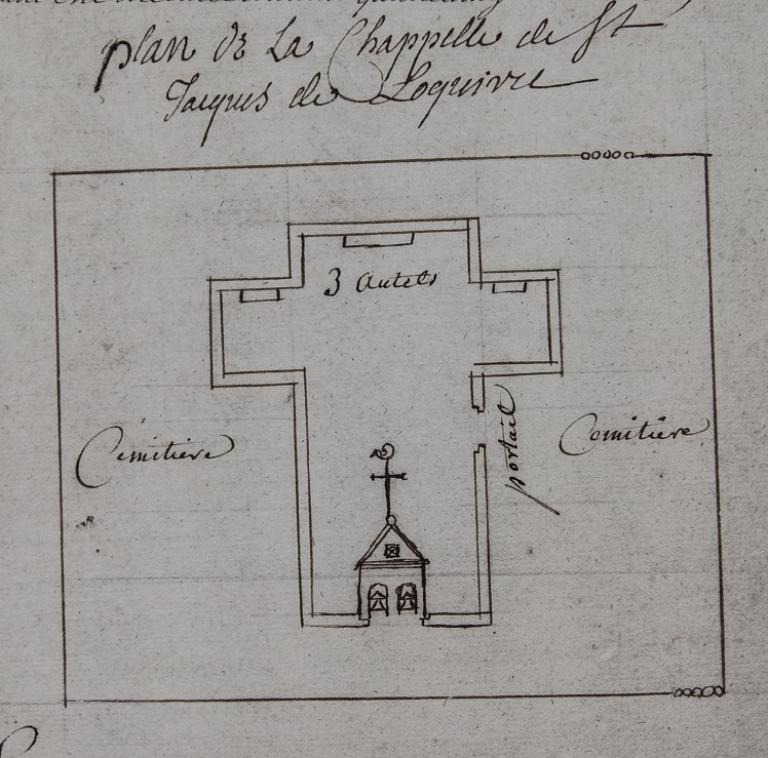 plan de La Chappelle de St
Jacques de Loquivre
3 autels
Cemitiere
portail
Cemitiere